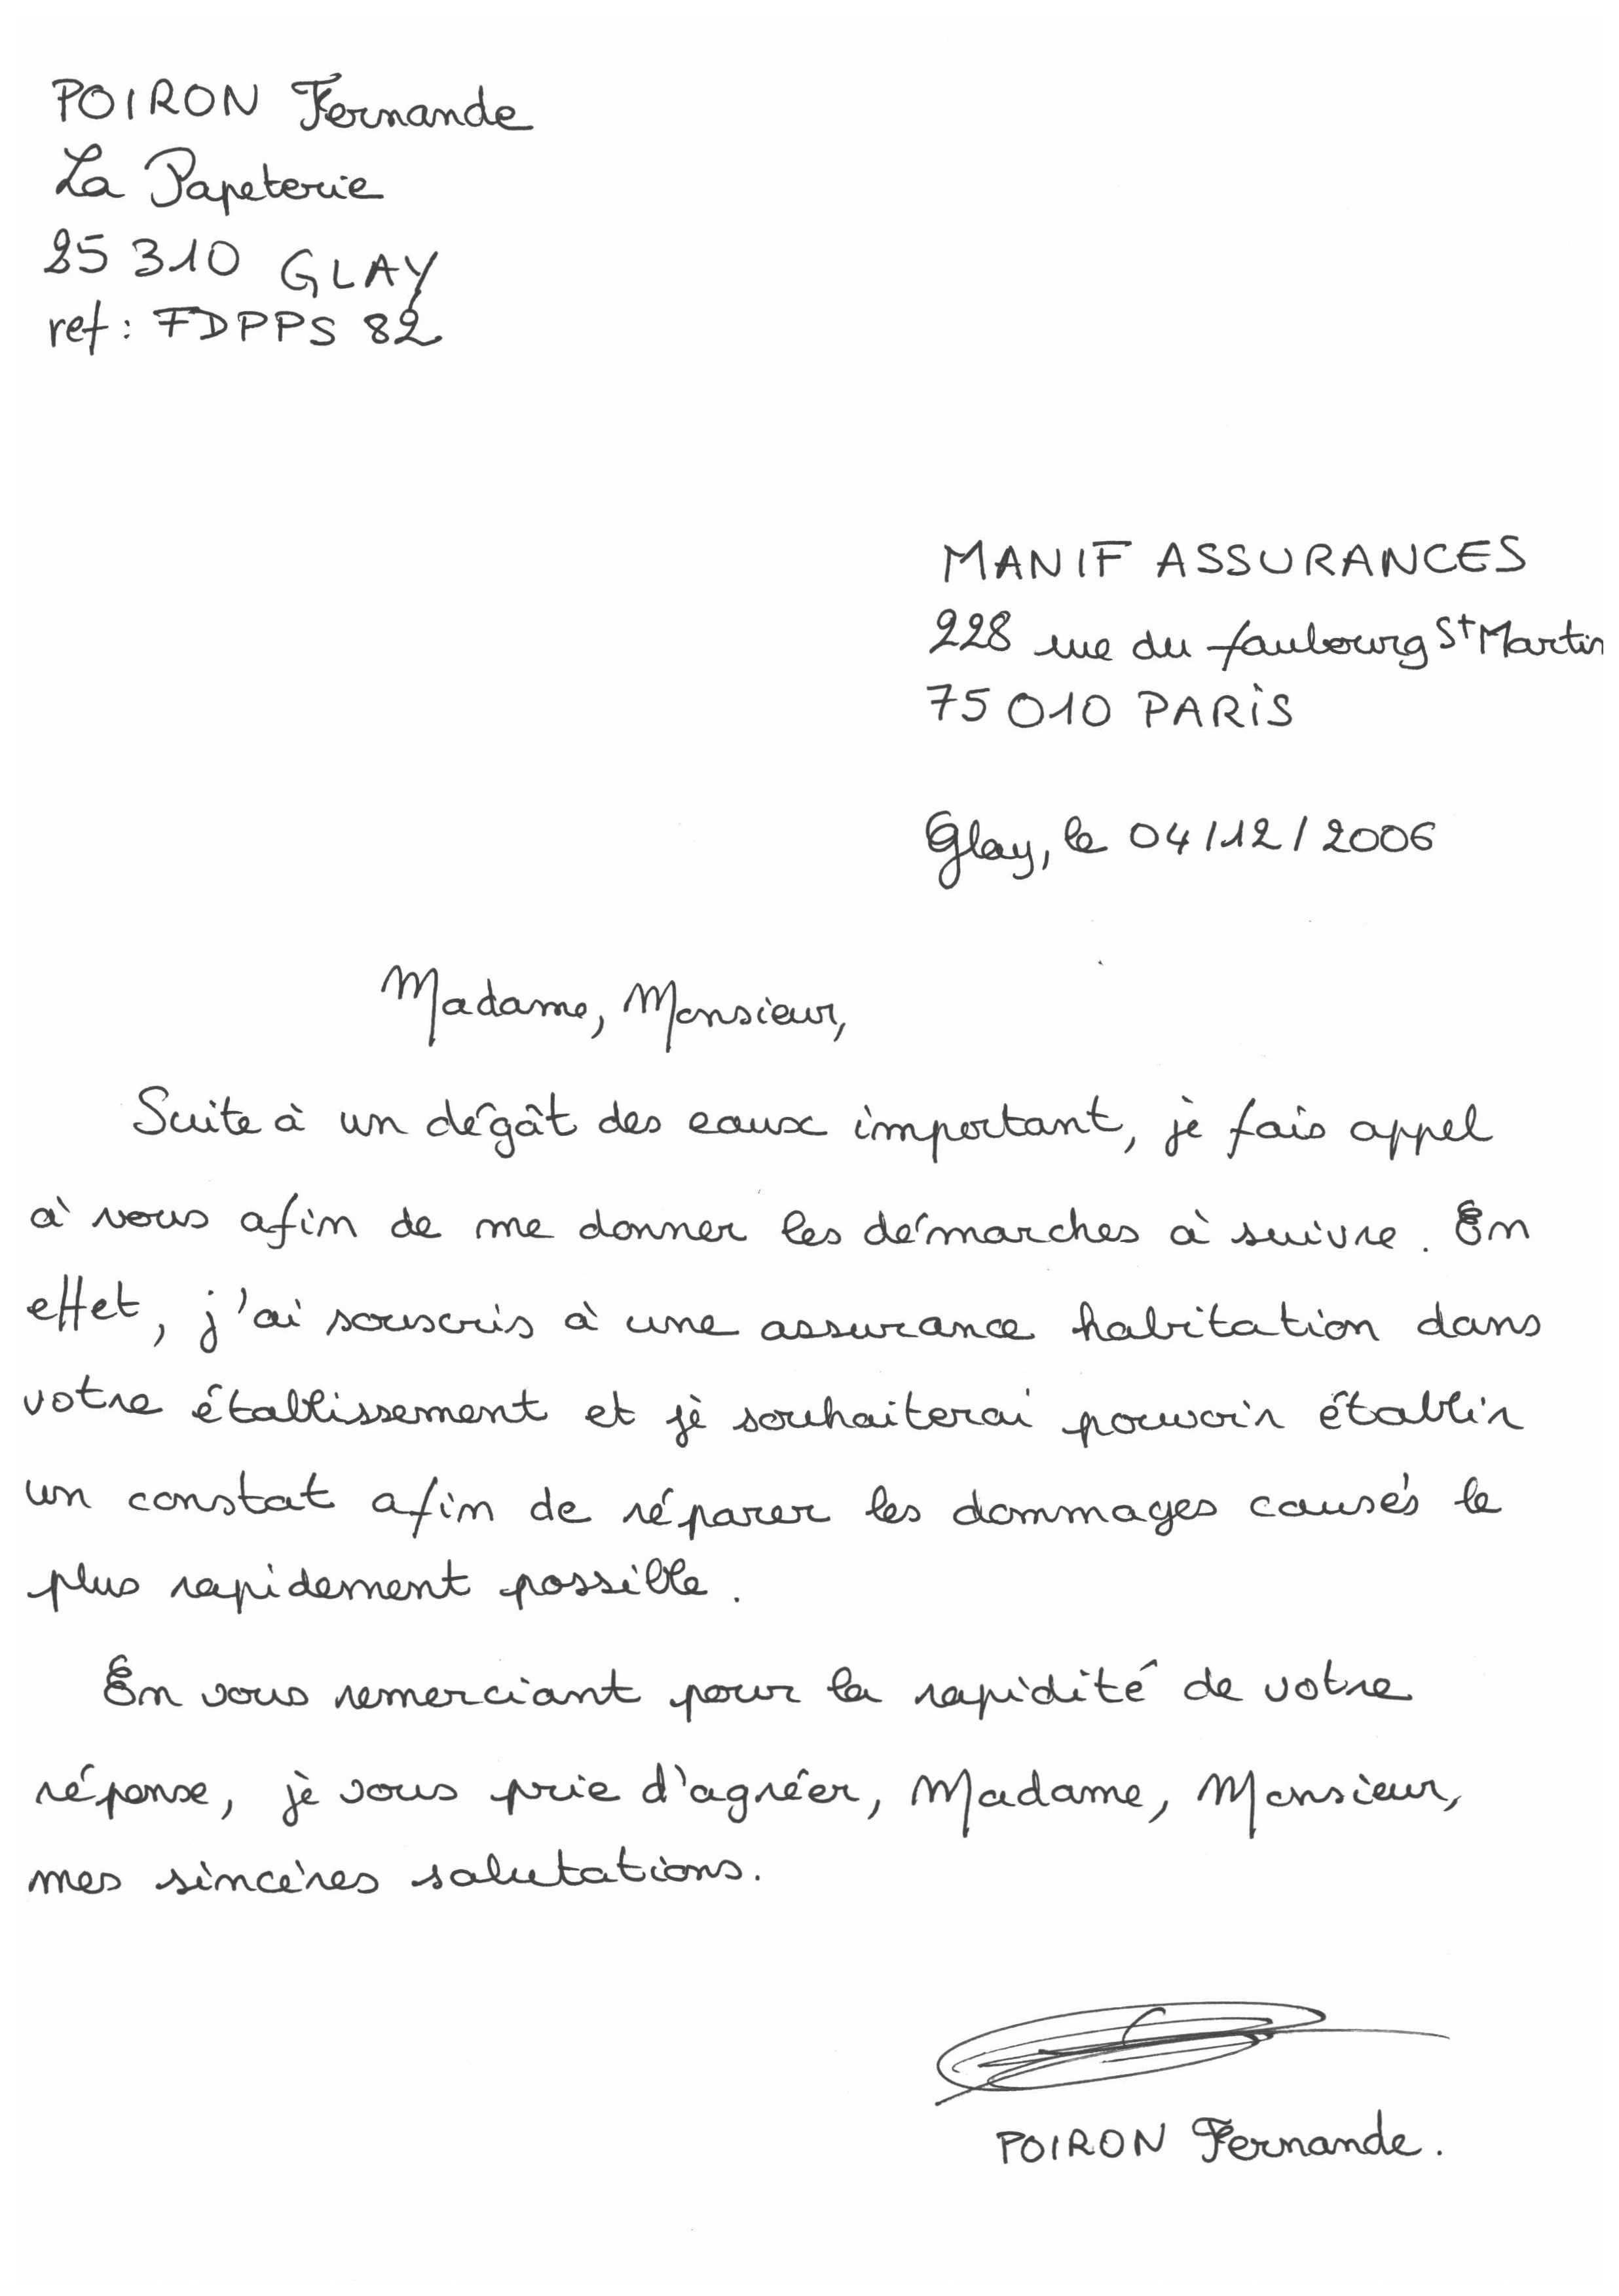 POIRON Fernande
La Papeterie
25 310 GLAY
ref : FDPPS 82
MANIF ASSURANCES
228 rue du faubourg St Martin
75 010 PARIS
Glay, le 04/12/2006
Madame, Monsieur,
Suite à un dégât des eaux important, je fais appel
à vous afin de me donner les démarches à suivre. En
effet, j'ai souscris à une assurance habitation dans
votre établissement et je souhaiterai pouvoir établir
un constat afin de réparer les dommages causés le
plus rapidement possible.
En vous remerciant pour la rapidité de votre
réponse, je vous prie d'agréer, Madame, Monsieur,
mes sincères salutations.
POIRON Fernande.